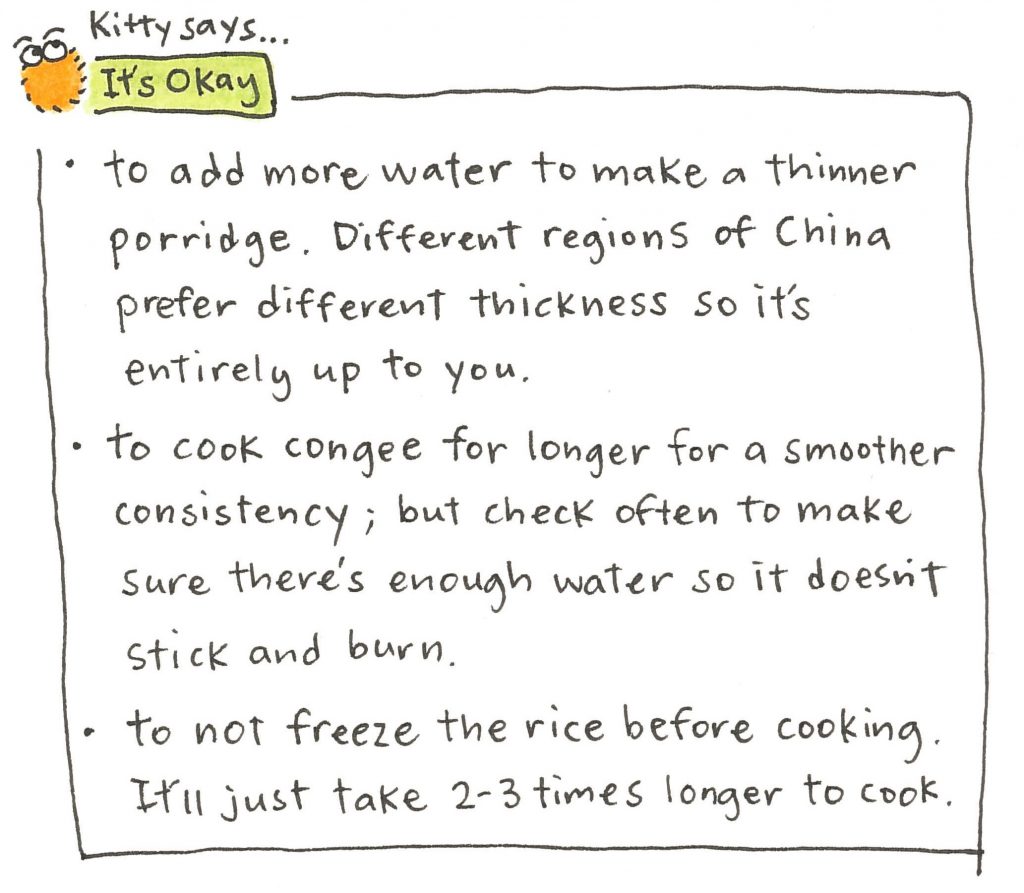 Kitty says...
It's Okay
• to add more water to make a thinner
porridge. Different regions of China
prefer different thickness so it's
entirely up to you.
• to cook congee for longer for a smoother
consistency; but check often to make
sure there's enough water so it doesn't
stick and burn.
• to not freeze the rice before cooking.
It'll just take 2-3 times longer to cook.